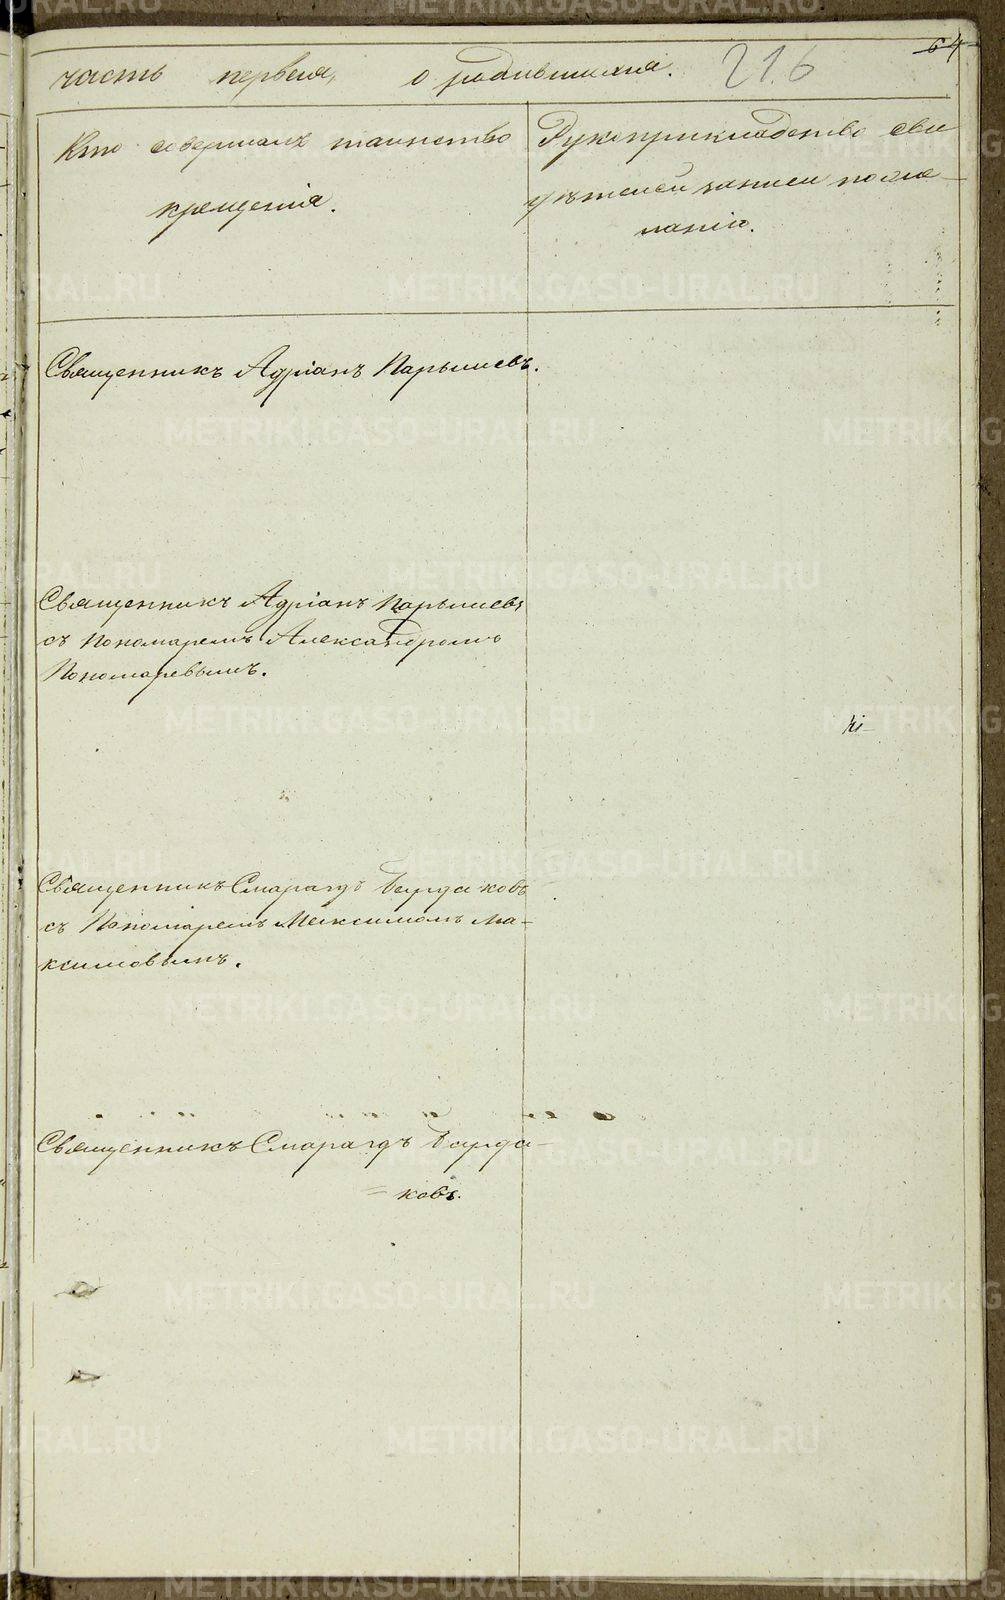 64
часть первая, о родившихся. 216
Кто совершалъ таинство
крещенія.
Рукоприкладство сви
дѣтелей записи по жела-
ланію.
Священникъ Адріанъ Парышевъ.
Священникъ Адріанъ Парышевъ
съ Пономаремъ Александромъ
Пономаревымъ.
Священникъ Смарагдъ Бардаковъ
съ Пономаремъ Максимомъ Ма-
ксимовымъ.
Священникъ Смарагдъ Барда-
= ковъ.
METRIKI.GASO-URAL.RU